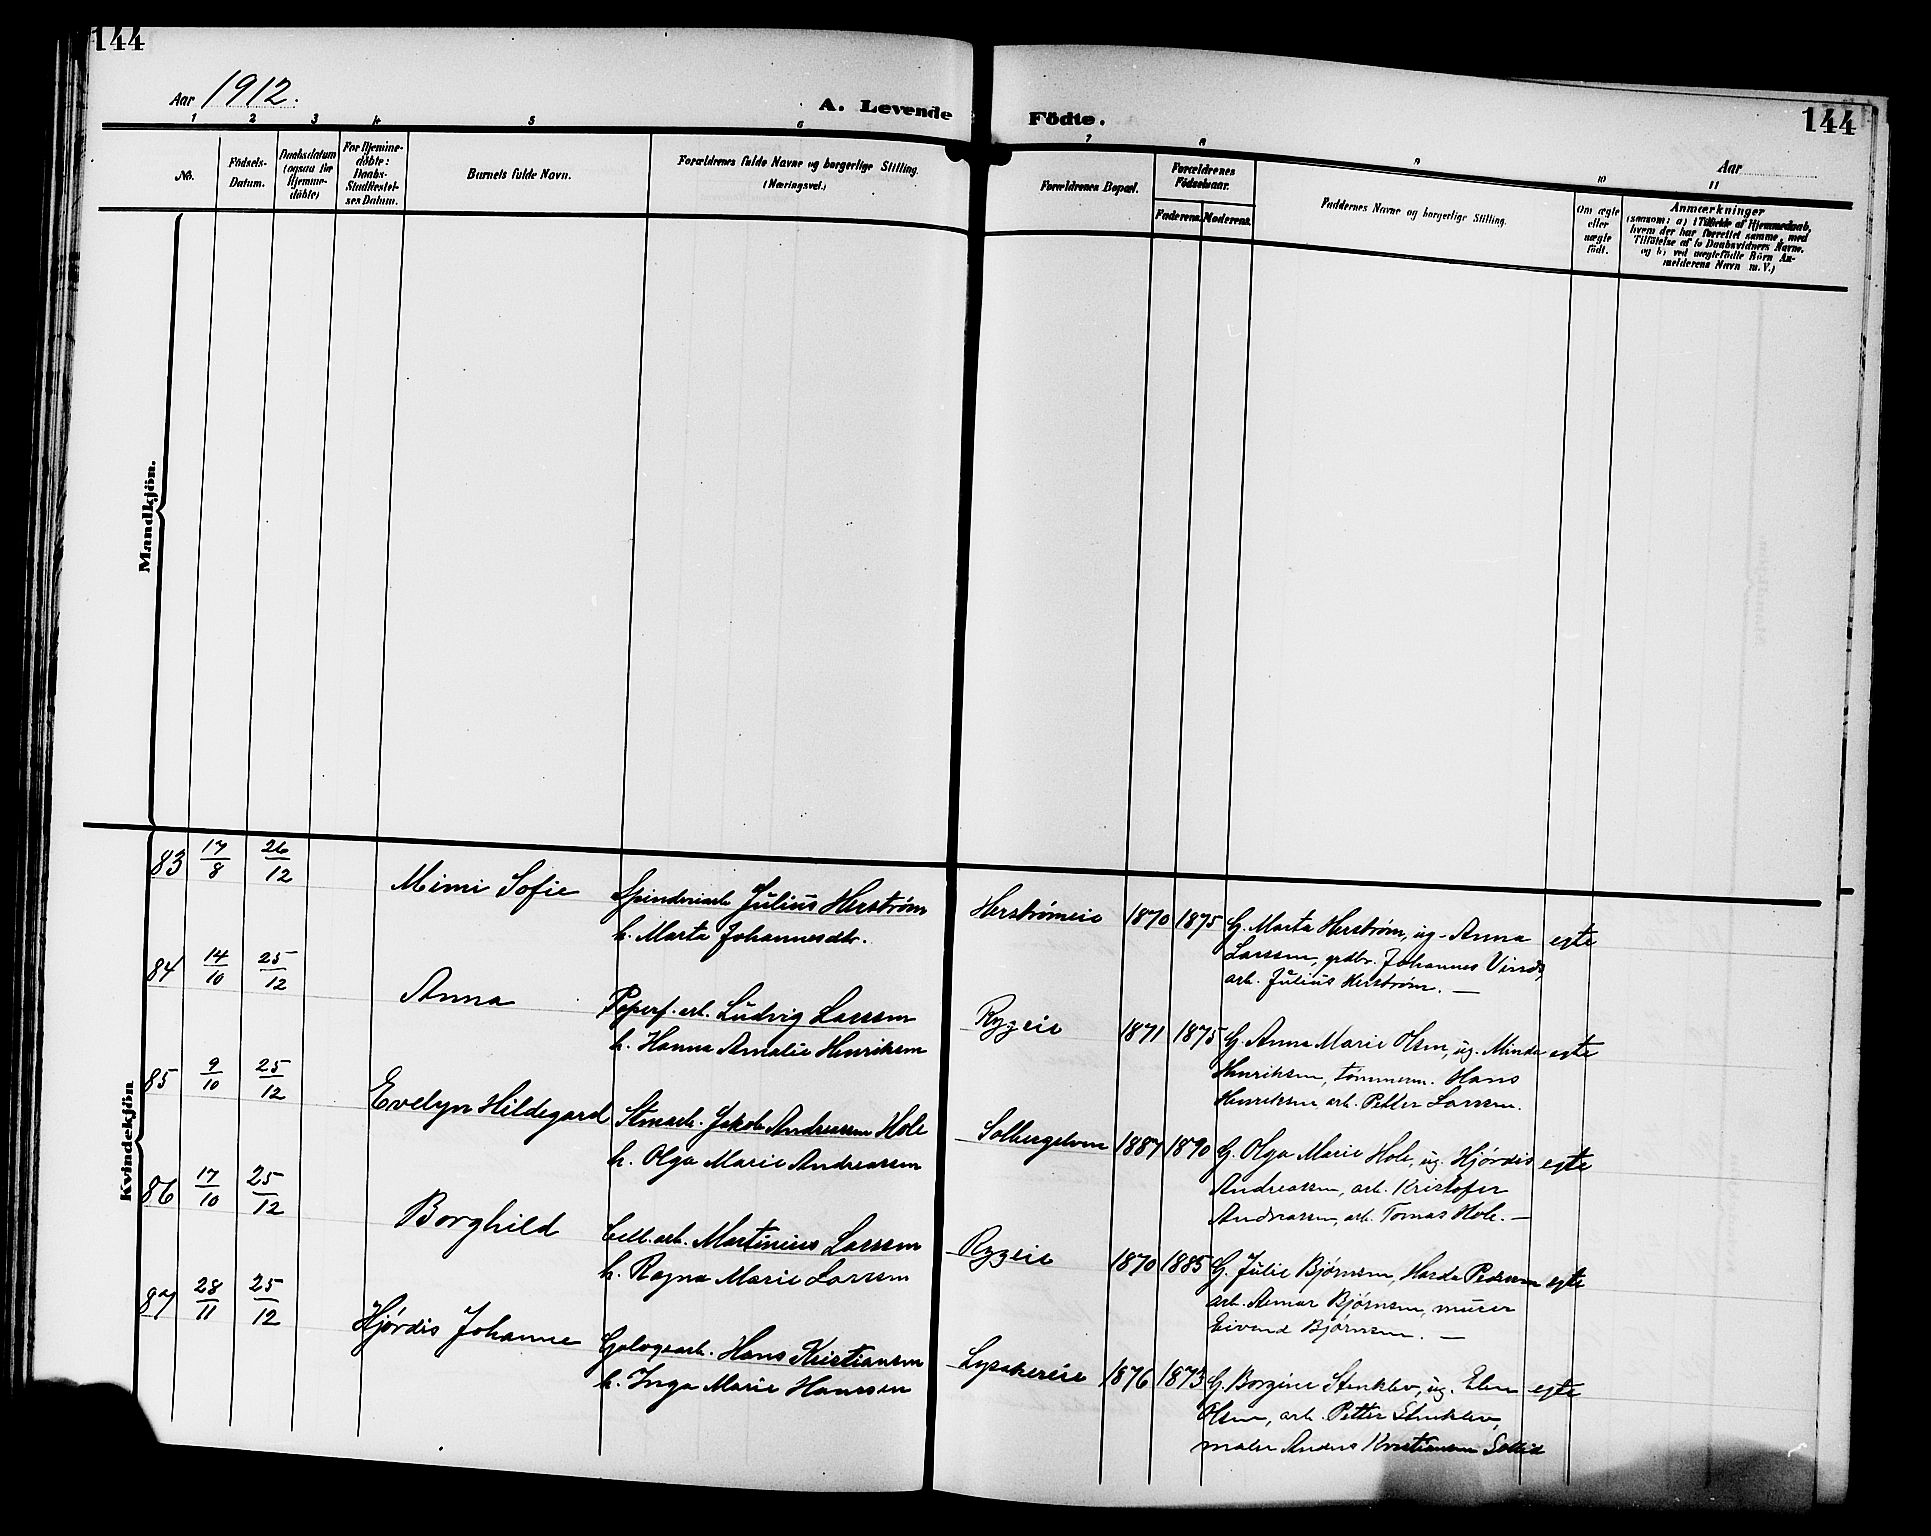 144
144
Aar 1912.
A. Levende Födte.
Aar
1 2 3 4 5 6 7 8 9 10 11
No.
Födsels-
Datum.
Daabsdatum
(ogsaa for
Hjemme-
döbte)
For Hjemme-
döbte:
Daabs-
Stadfæstel-
ses Datum.
Barnets fulde Navn.
Forældrenes fulde Navne og borgerlige Stilling.
(Næringsvei.)
Forældrenes Bopæl.
Forældrenes
Födselsaar.
Faderens. Moderens.
Faddernes Navne og borgerlige Stilling.
Om ægte
eller
uægte
födt.
Anmærkninger
(saasom: a) i Tilfælde af Hjemmedaab,
hvem der har forrettet samme, med
Tilföielse af to Daabsvidners Navne.
og b) ved uægtefödte Börn An-
melderens Navn m. V.)
Mandkjön.
Kvindekjön
83 17/8 26/12 Mimi Sofie Spinderiarb. Julius Herstrøm Herstrømeie 1870 1875 G. Marta Herstrøm, ug. Anna egte
h. Marta Johannesdtr. Larssen, grdbr. Johannes
arb. Julius Herstrøm. —
84 14/10 25/12 Anna Papirf. arb. Ludvig Larssen Ryggeie 1871 1875 G. Anna Marie Olsen, ug. Minda egte
h. Hanna Amalie Henriksen Henriksen, tømmerm. Hans
Henriksen, arb. Petter Larssen.
85 9/10 25/12 Evelyn Hildegard Stenarb. Jakob Andreassen Hole Solbergelven 1887 1890 G. Olga Marie Hole, ug. Hjørdis egte
h. Olga Marie Andreassen Andreassen, arb. Kristofer
Andreassen, arb. Tomas Hole. —
86 17/10 25/12 Borghild Cell. arb. Martinius Larssen Ryggeie 1870 1885 G. Julie Bjørnsen, Harda Pedersen egte
h. Ragna Marie Larssen arb. Bjørnsen, murer
Eivend Bjørnsen. —
87 28/11 25/12 Hjørdis Johanne arb. Hans Kristiansen Lysakereie 1876 1873 G. Borgine Stenklev, ug. Elen egte
h. Inga Marie Hanssen Olsen, arb. Petter Stenklev,
maler Anders Kristiansen Sollid